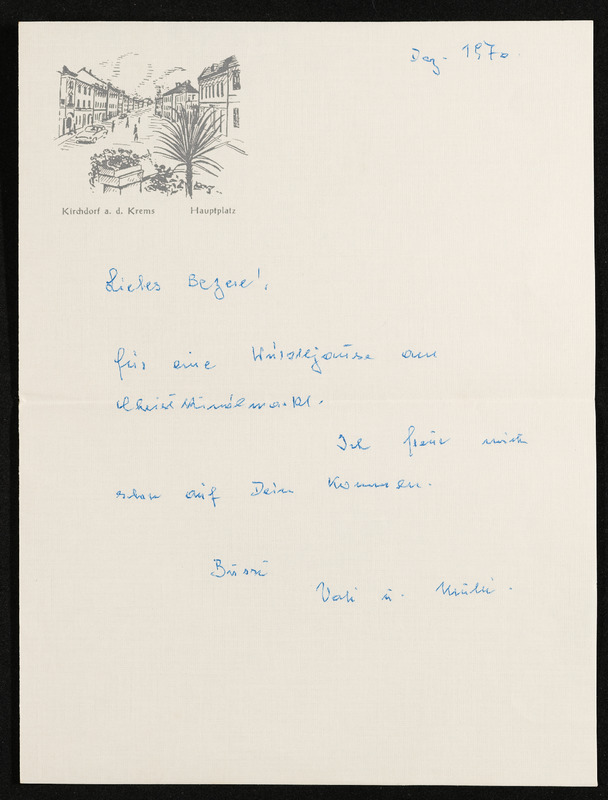 Dez. 1970.
Kirchdorf a. d. Krems Hauptplatz
Liebes
für eine Würsteljause am
Christkindlmarkt.
Ich freue mich
schon auf Dein Kommen.
Bussi
Vati u. Mutti.